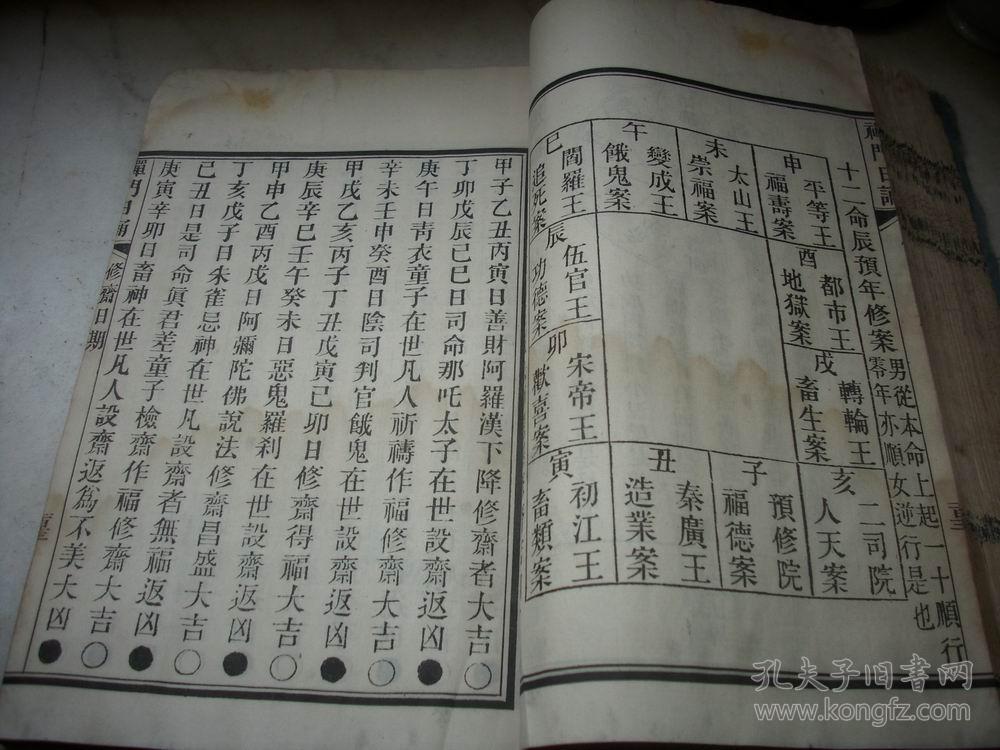 十二命辰預年修案 男從本命上起一十順行
零年亦順女逆行是也
申 平等王 福壽案
未 太山王 崇福案
午 變成王 餓鬼案
巳 閻羅王 追死案
酉 都市王 地獄案
戌 轉輪王 畜生案
亥 二司院 人天案
子 預修院 福德案
丑 秦廣王 造業案
寅 初江王 畜類案
卯 宋帝王 歡喜案
辰 伍官王 功德案
甲子乙丑丙寅日善財阿羅漢下降修齋者大吉○
丁卯戊辰己巳日司命那吒太子在世設齋返凶●
庚午日靑衣童子在世凡人祈禱作福修齋大吉○
辛未壬申癸酉日陰司判官餓鬼在世設齋返凶●
甲戌乙亥丙子丁丑戊寅己卯日修齋得福大吉○
庚辰辛巳壬午癸未日惡鬼羅刹在世設齋返凶●
甲申乙酉丙戌日阿彌陀佛說法修齋昌盛大吉○
丁亥戊子日朱雀忌神在世凡設齋者無福返凶●
己丑日是司命眞君差童子檢齋作福修齋大吉○
庚寅辛卯日畜神在世凡人設齋返為不美大凶●
禪門日誦 修齋日期
孔夫子旧书网
www.kongfz.com